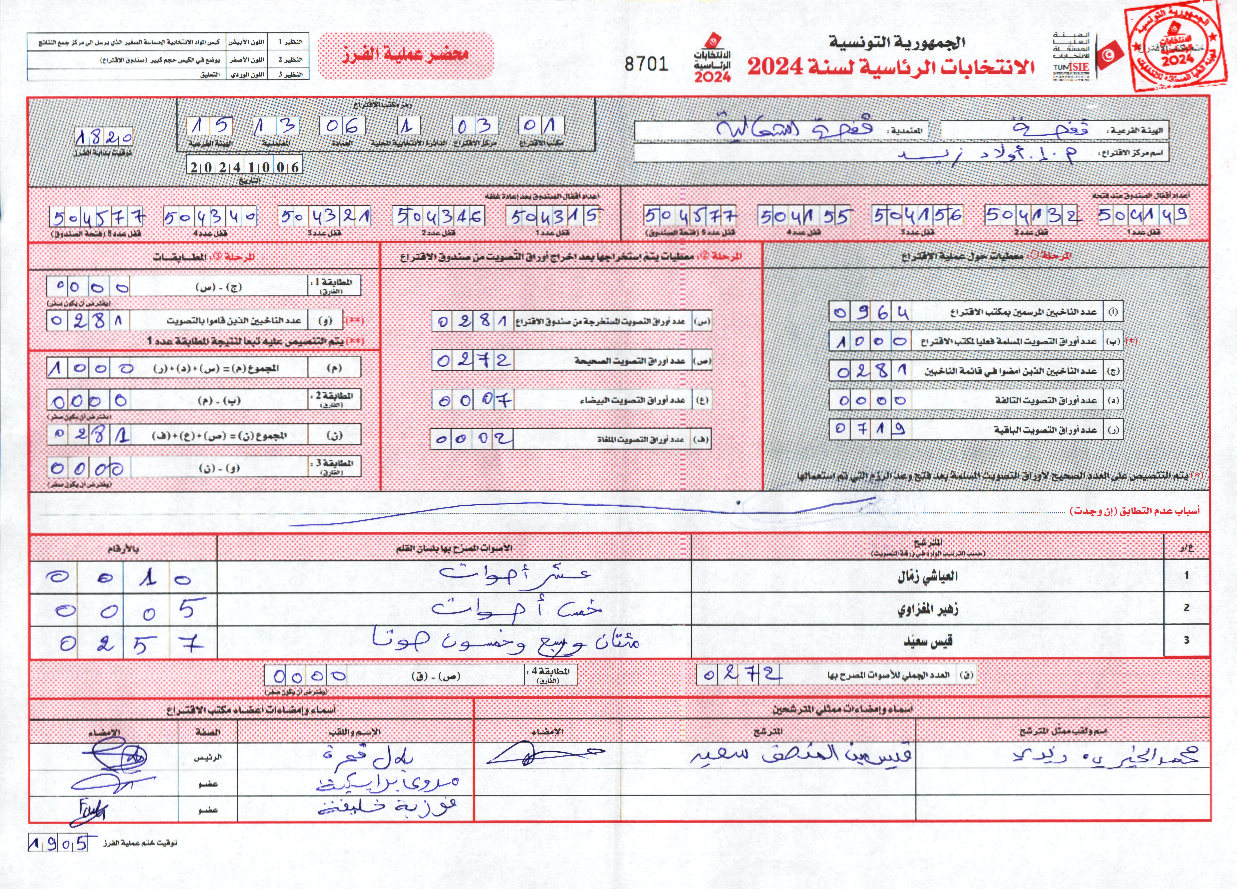 الجمهورية التونسية
الانتخابات الرئاسية لسنة 2024
الهيئة العليا المستقلة للانتخابات
TUNISIE
الانتخابات الرئاسية 2024
8701
محضر عملية الفرز
النظير 1 اللون الأبيض كيس المواد الانتخابية الحساسة الصغير الذي يرسل الى مركز جمع النتائج
النظير 2 اللون الأصفر يوضع في الكيس حجم كبير (صندوق الاقتراع)
النظير 3 اللون الوردي التعليق
الجمهورية التونسية
الانتخابات الرئاسية 2024
الهيئة الفرعية: قفصة المعتمدية: قفصة الشمالية
اسم مركز الاقتراع: م.إ. أولاد زيد
رمز مكتب الاقتراع
01 03 1 06 13 15
مكتب الاقتراع مركز الاقتراع الدائرة الانتخابية المحلية العمادة المعتمدية الهيئة الفرعية
20241006
التاريخ
1820
توقيت بداية الفرز
أعداد أقفال الصندوق عند فتحه
504149 504132 504156 504155 504577
قفل عدد 1 قفل عدد 2 قفل عدد 3 قفل عدد 4 قفل عدد 5 (فتحة الصندوق)
أعداد أقفال الصندوق بعد إعادة غلقه
504315 504346 504321 504340 504577
قفل عدد 1 قفل عدد 2 قفل عدد 3 قفل عدد 4 قفل عدد 5 (فتحة الصندوق)
المرحلة 1: معطيات حول عملية الاقتراع
(أ) عدد الناخبين المرسمين بمكتب الاقتراع 0964
(*) (ب) عدد أوراق التصويت المسلمة فعليا لمكتب الاقتراع 1000
(ج) عدد الناخبين الذين أمضوا في قائمة الناخبين 0281
(د) عدد أوراق التصويت التالفة 0000
(ر) عدد أوراق التصويت الباقية 0719
(*) يتم التنصيص على العدد الصحيح لأوراق التصويت المسلمة بعد فتح وعد الرزم التي تم استعمالها
المرحلة 2: معطيات يتم إستخراجها بعد إخراج أوراق التصويت من صندوق الاقتراع
(س) عدد أوراق التصويت المستخرجة من صندوق الاقتراع 0281
(ص) عدد أوراق التصويت الصحيحة 0272
(ع) عدد أوراق التصويت البيضاء 0007
(ف) عدد أوراق التصويت الملغاة 0002
المرحلة 3: المطابقات
المطابقة 1: (الفارق) (ج) - (س) 0000
(يفترض أن يكون صفر)
(**) (و) عدد الناخبين الذين قاموا بالتصويت 0281
(**) يتم التنصيص عليه تبعا لنتيجة المطابقة عدد 1
(م) المجموع (م) = (س) + (د) + (ر) 1000
المطابقة 2: (الفارق) (ب) - (م) 0000
(يفترض أن يكون صفر)
(ن) المجموع (ن) = (ص) + (ع) + (ف) 0281
المطابقة 3: (الفارق) (و) - (ن) 0000
(يفترض أن يكون صفر)
أسباب عدم التطابق (إن وجدت)
ع/ر المترشح الأصوات المصرح بها بلسان القلم بالأرقام
(حسب الترتيب الوارد في ورقة التصويت)
1 العياشي زمّال عشر أصوات 0010
2 زهير المغزاوي خمس أصوات 0005
3 قيس سعيّد مئتان وسبع وخمسون صوتا 0257
(ق) العدد الجملي للأصوات المصرح بها 0272
المطابقة 4: (الفارق) (ص) - (ق) 0000
(يفترض أن يكون صفر)
أسماء وإمضاءات ممثلي المترشحين
اسم ولقب ممثل المترشح المترشح الإمضاء
محمد الخيري زيدي قيس بن المنصف سعيد
أسماء وإمضاءات أعضاء مكتب الاقتراع
الإسم واللقب الصفة الإمضاء
بلال قمرة الرئيس
مروى براييكية عضو
فوزية خليفة عضو
توقيت ختم عملية الفرز 1905